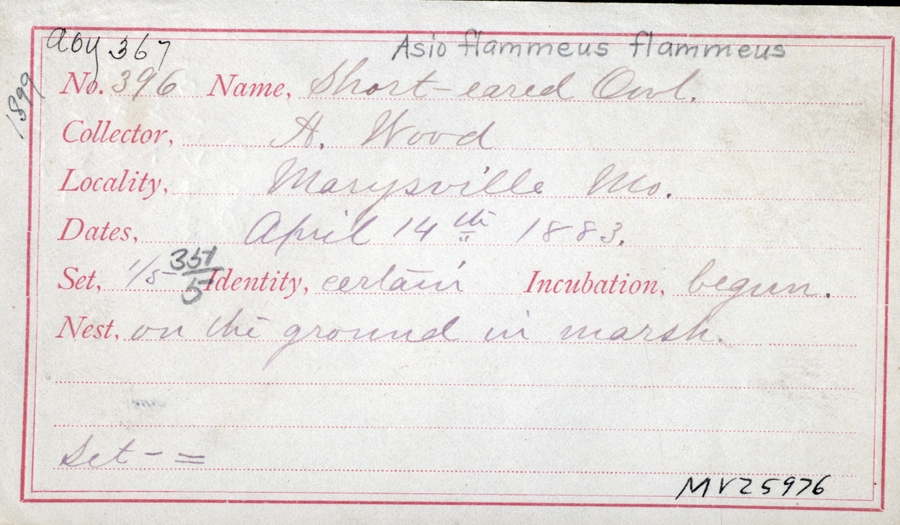 aoy 367
Asio flammeus flammeus
1899
No. 396 Name, Short-eared Owl.
Collector, H. Wood
Locality, Marysville Mo.
Dates, April 14th 1883.
Set, 1/5 351/5 Identity, certain Incubation, begun.
Nest, on the ground in marsh.
Set - =
MVZ5976